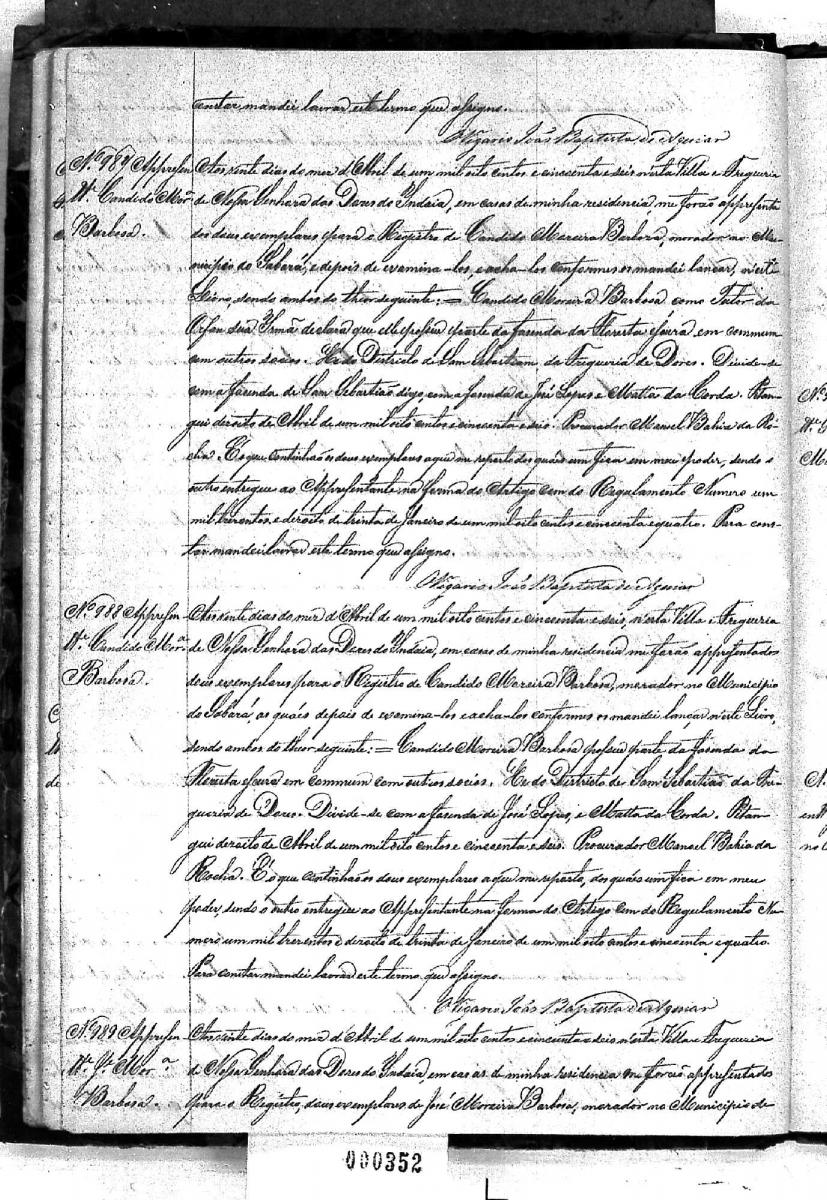 constar mandei lavrar este termo que assigno.
O Vigario João Baptista de Aguiar
Nº 987 Appresen
te Candido Morª
Barbosa.
Aos vinte dias do mez d'Abril de um mil oito centos e cincoenta e seis nesta Villa e Freguesia
de Nossa Senhora das Dores do Indaiá, em casas de minha residencia me forão appresenta
dos dous exemplares para o Registro de Candido Moreira Barbosa, morador no Mu-
nicipio do Sabará, e depois de examina-los, e acha-los conformes os mandei lançar, n'este
Livro, sendo ambos do theor seguinte: = Candido Moreira Barbosa como Tutor da
Orfan sua Irmã declara que elle possue parte da fasenda da Floresta em commum
com outros socios. He do Districto de Sam Sebastiam da Freguesia de Dores. Divide-se
com a fasenda de Sam Sebastião digo, com a fasenda de José Lopes e Matta da Corda. Pitan-
gui desoito de Abril de um mil oito centos e cincoenta e seis. Procurador Manoel Bahia da Ro-
cha. E o que continhão os dous exemplares a que me reporto dos quaes um fica em meu poder, sendo o
outro entregue ao Appresentante na forma do Artigo cem do Regulamento Numero um
mil trezentos, e desoito de trinta de Janeiro de um mil oito centos e cincoenta e quatro. Para cons-
tar mandei lavrar este termo que assigno.
O Vigario João Baptista de Aguiar
Nº 988 Appresen-
te Candido Morª
Barbosa.
Aos vinte dias do mez d'Abril de um mil oito centos e cincoenta e seis, n'esta Villa e Freguesia
de Nossa Senhora das Dores do Indaiá, em casas de minha residencia me forão appresentados
dous exemplares para o Registro de Candido Moreira Barbosa, morador no Municipio
do Sabará, os quaes depois de examina-los e acha-los conformes os mandei lançar n'este Livro,
sendo ambos do theor seguinte: = Candido Moreira Barbosa possue parte da fasenda da
Floresta em commum com outros socios. He do Districto de Sam Sebastião da Fre-
guesia de Dores. Divide-se com a fasenda de José Lopes, e Matta da Corda. Pitan-
gui desoito de Abril de um mil oito centos e cincoenta e seis. Procurador Manoel Bahia da
Rocha. E o que continhão os dous exemplares a que me reporto, dos quaes um fica em meu
poder, sendo o outro entregue ao Appresentante na forma do Artigo cem do Regulamento Nu-
mero um mil trezentos e desoito de trinta de Janeiro de um mil oito centos e cincoenta e quatro.
Para constar mandei lavrar este termo que assigno.
O Vigario João Baptista de Aguiar
Nº 989 Appresen
te Jé Morª
Barbosa.
Aos vinte dias do mez d'Abril de um mil oito centos e cincoenta e seis n'esta Villa e Freguesia
de Nossa Senhora das Dores do Indaiá, em casas de minha residencia me forão appresentados
para o Registro, dous exemplares de José Moreira Barbosa, morador no Municipio de
000352